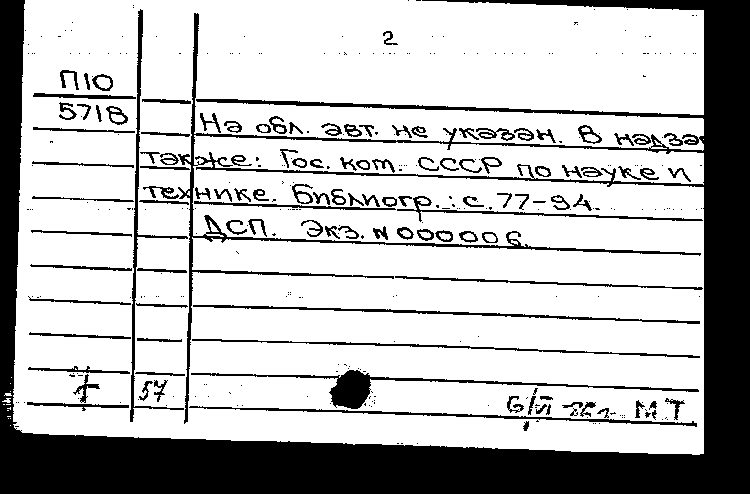 2
П10
5718
На обл. авт. не указан. В надзаг
также: Гос. ком. СССР по науке и
технике. Библиогр.: с. 77-94.
ДСП. Экз. N 000006.
57
6/VI М Т